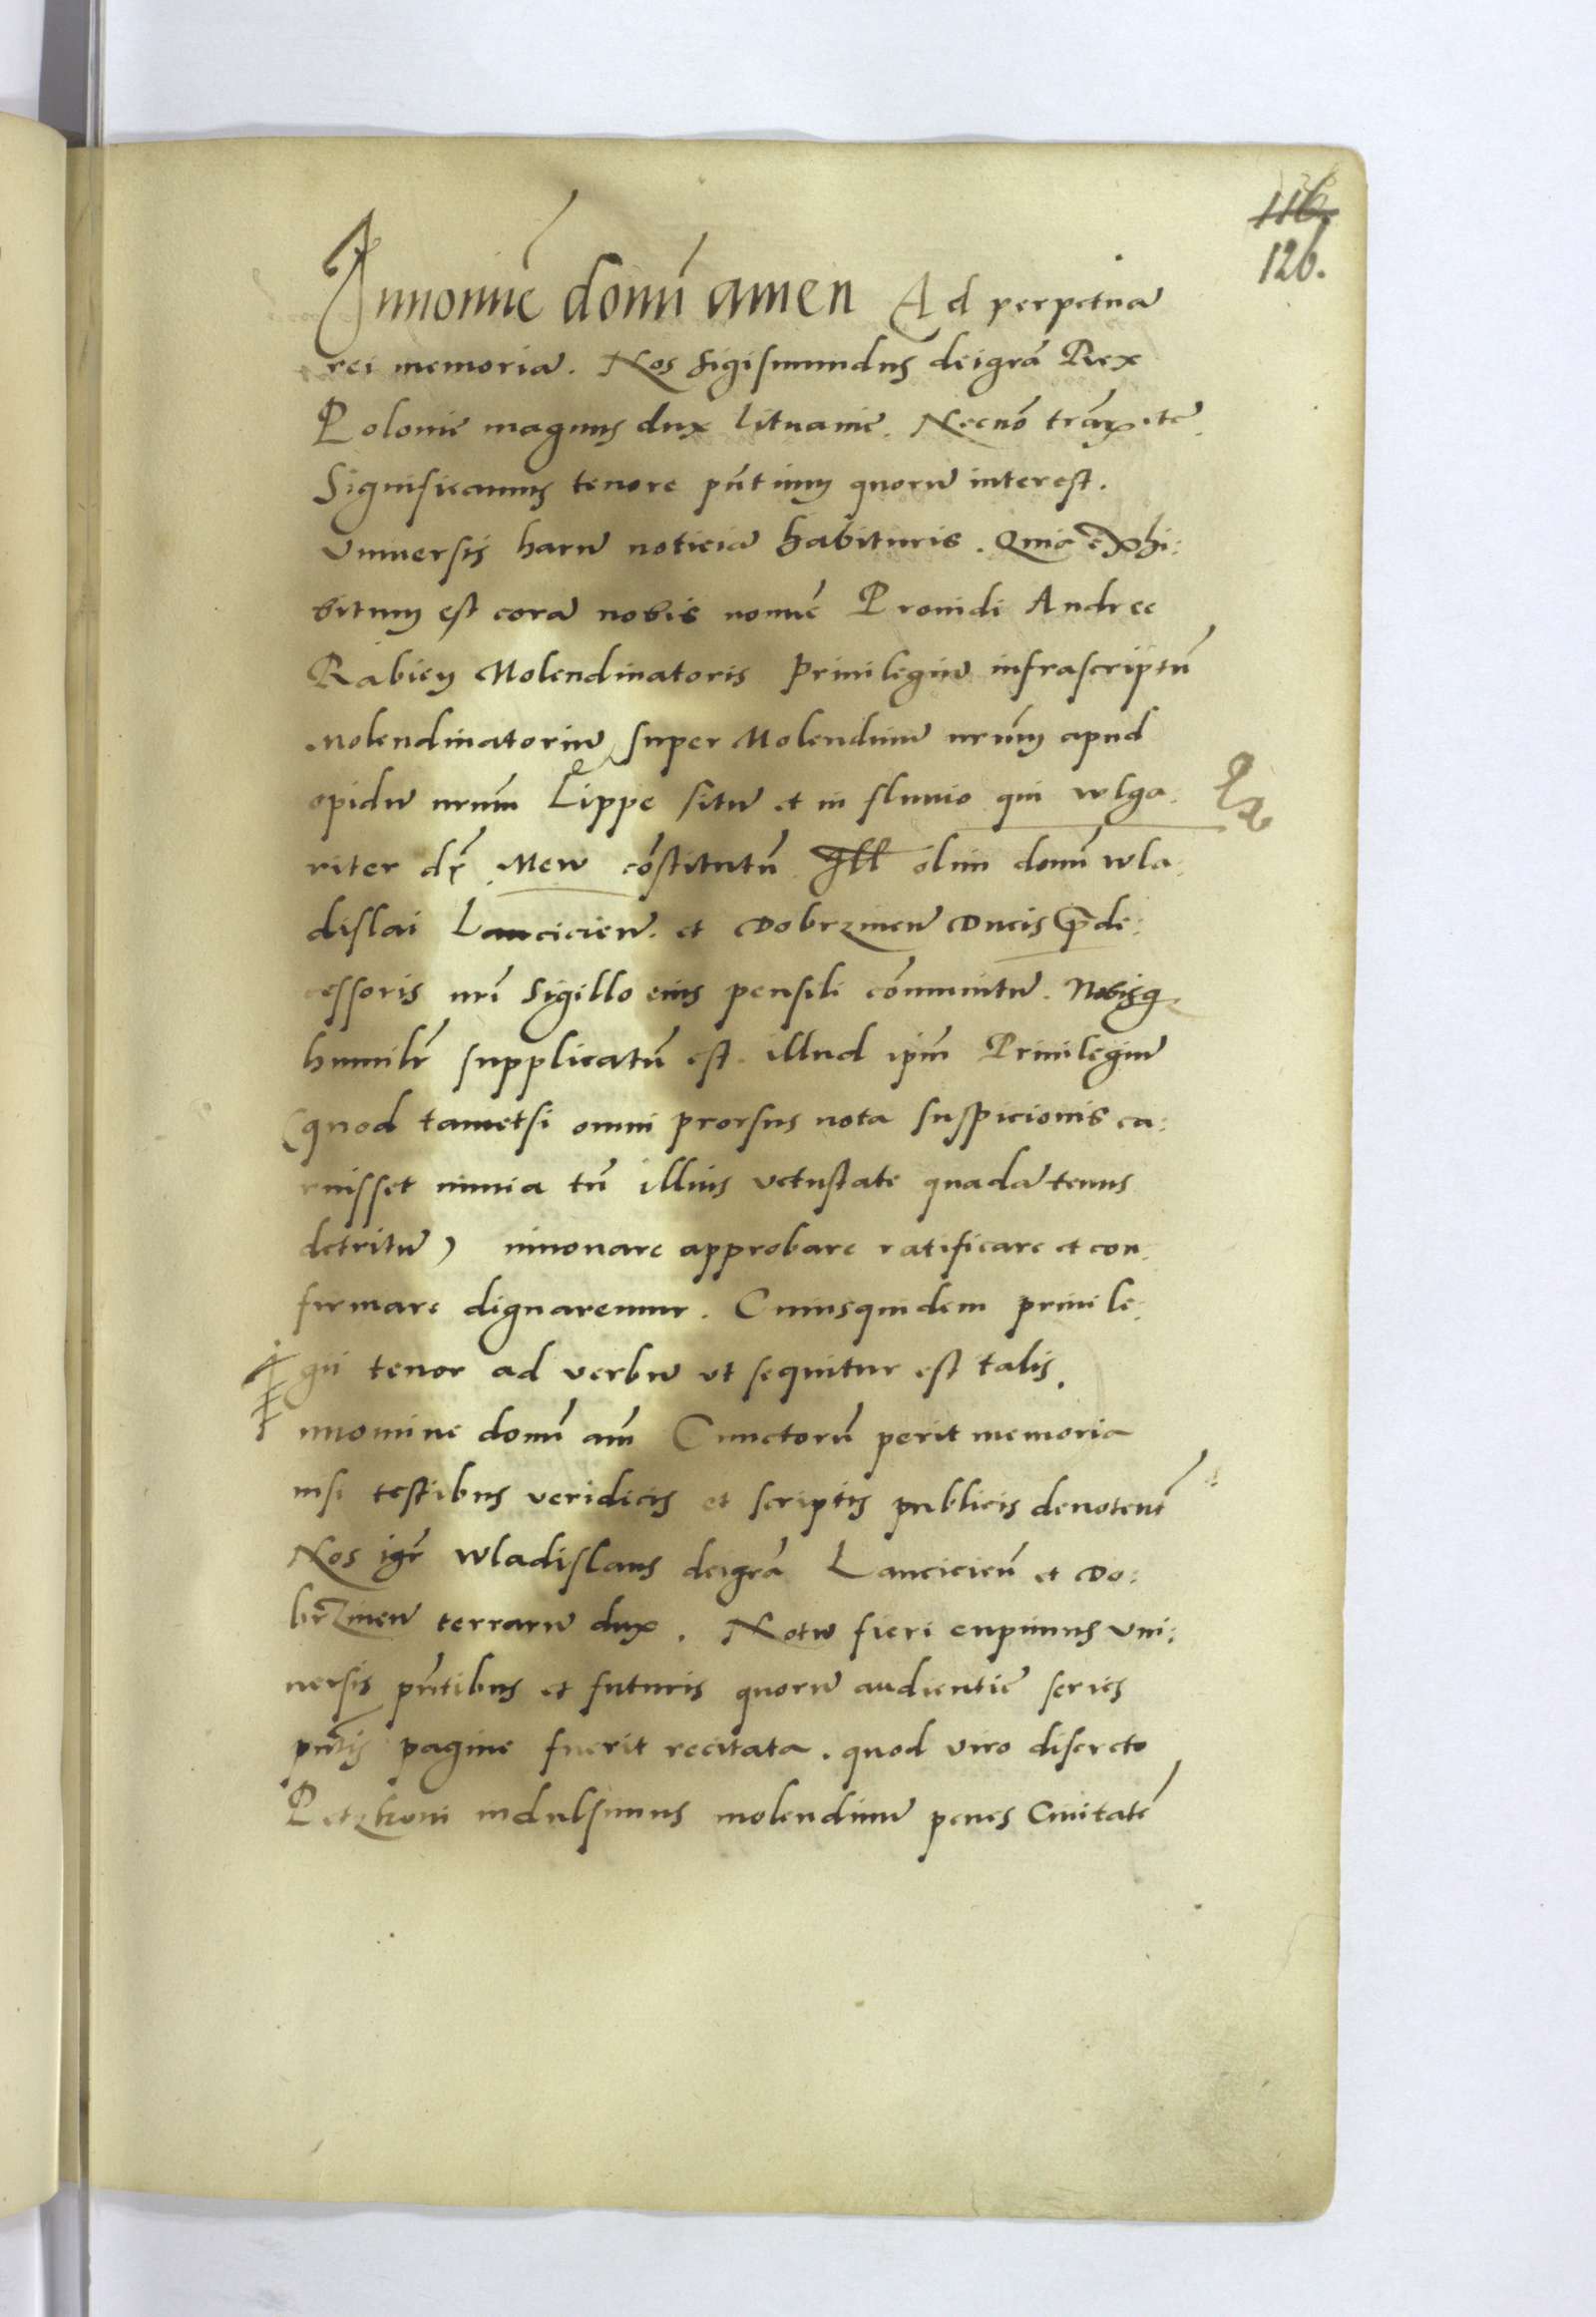 116.
126.
Innomīe domī amen Ad perpetuā
rei memoriā. Nos Sigismundus deigrā Rex
Polonie magnus dux lituanie. Necnō trāꝝ etc̄.
Significamus tenore pn̄tium quorū interest.
Vniuersis harū noticiā habituris. Quiō exhi:
bitum est corā nobis nomīe Prouidi Andree
Rabiey Molendinatoris Priuilegiū infrascriptū
Molendinatoriū super Molendinū nrūm apud
opidū nrūm Lippe sitū et in fluuio qui wlga
riter dr̄ Mew cōstitutū Ill olim domī wla
dislai Lancicien̄. et Dobrzinen̄ Ducis p̄de:
cessoris nrī Sigillo eius pensili cōmunitū. Nobisqꝫ
humilr̄ supplicatū est illud ip̄m Priuilegiū
(quod tametsi omni prorsus nota suspicionis ca:
ruisset nimia tn̄ illius vetustate quadātenus
detritū) innouare approbare ratificare et con
firmare dignaremur. Cuiusquidem priuile:
gii tenor ad verbū vt sequitur est talis.
Innomine domī am̄ Cunctorū perit memoria
nisi testibus veridicis et scriptis publicis denotent̄
Nos igr̄ Wladislaus deigrā Lancicien̄ et Do:
br̄zinen̄ terrarū dux. Notū fieri cupimus vni:
uersis pn̄tibus et futuris quorū audientie series
pn̄tis pagine fuerit recitata. quod viro discreto
Petzkoni indulsimus molendinū penes Ciuitatē